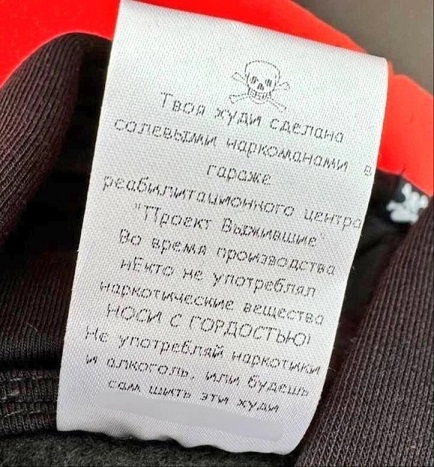 Твоя худи сделана
солевыми наркоманами в
гараже
реабилитационного центра
"Проект Выжившие"
Во время производства
нЕкто не употреблял
наркотические вещества
НОСИ С ГОРДОСТЬЮ!
Не употребляй наркотики
и алкоголь, или будешь
сам шить эти худи